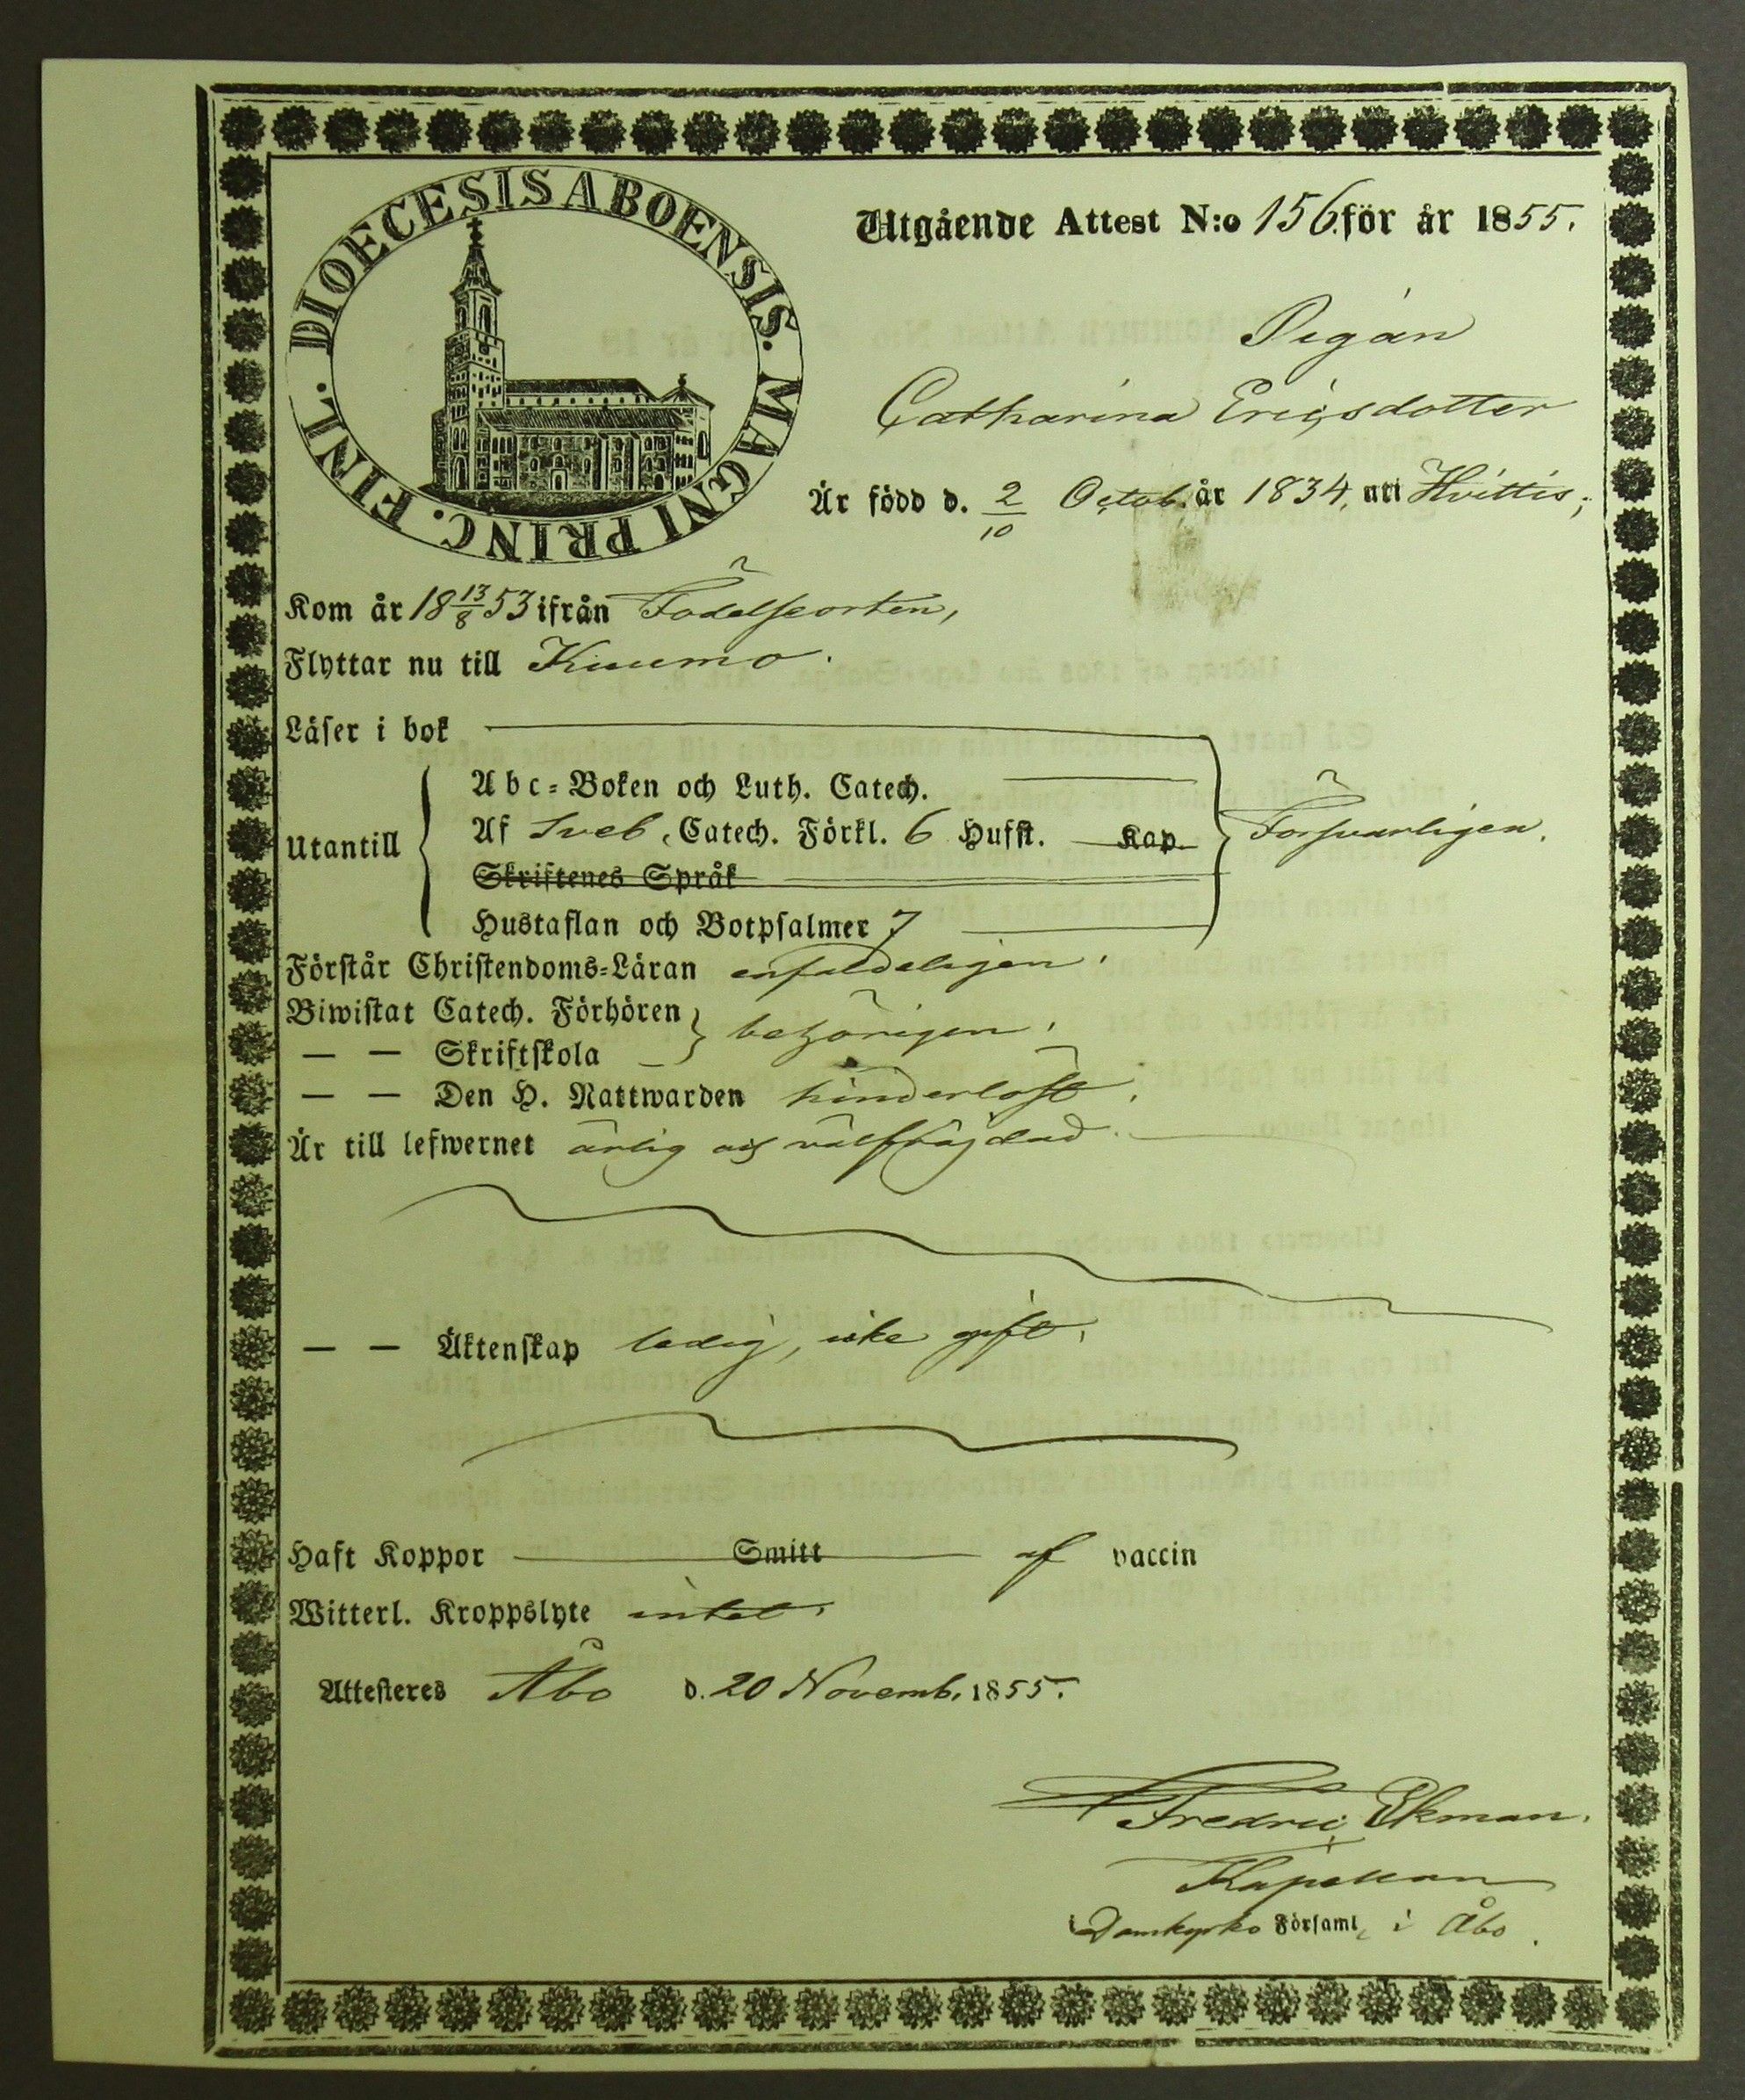 DIOECESIS ABOENSIS. MAGNI PRINC. FINL.
Utgående Attest N:o 156 för år 1855.
Pigan
Catharina Ericsdotter
Är född d. 2/10 Octob. år 1834, uti Hvittis;
Kom år 18 13/8 53 ifrån Födelseorten,
Flyttar nu till Kiumo.
Läser i bok
Abc=Boken och Luth. Catech.
Utantill Af Sveb. Catech. Förkl. 6 Hufst. Kap. Försvarligen.
Skriftenes Språk
Hustaflan och Botpsalmer 7
Förstår Christendoms=Läran enfaldeligen.
Biwistat Catech. Förhören
— — Skriftskola behörigen.
— — Den H. Nattwarden hinderlöst.
Är till lefwernet ärlig och välfrägdad.
— — Äktenskap ledig, icke gift.
Haft Koppor Smitt af vaccin
Witterl. Kroppslyte intet.
Attesteres Åbo d. 20 Novemb. 1855.
Fredric Ekman.
Kapellan
i Domkyrko Församl. i Åbo.